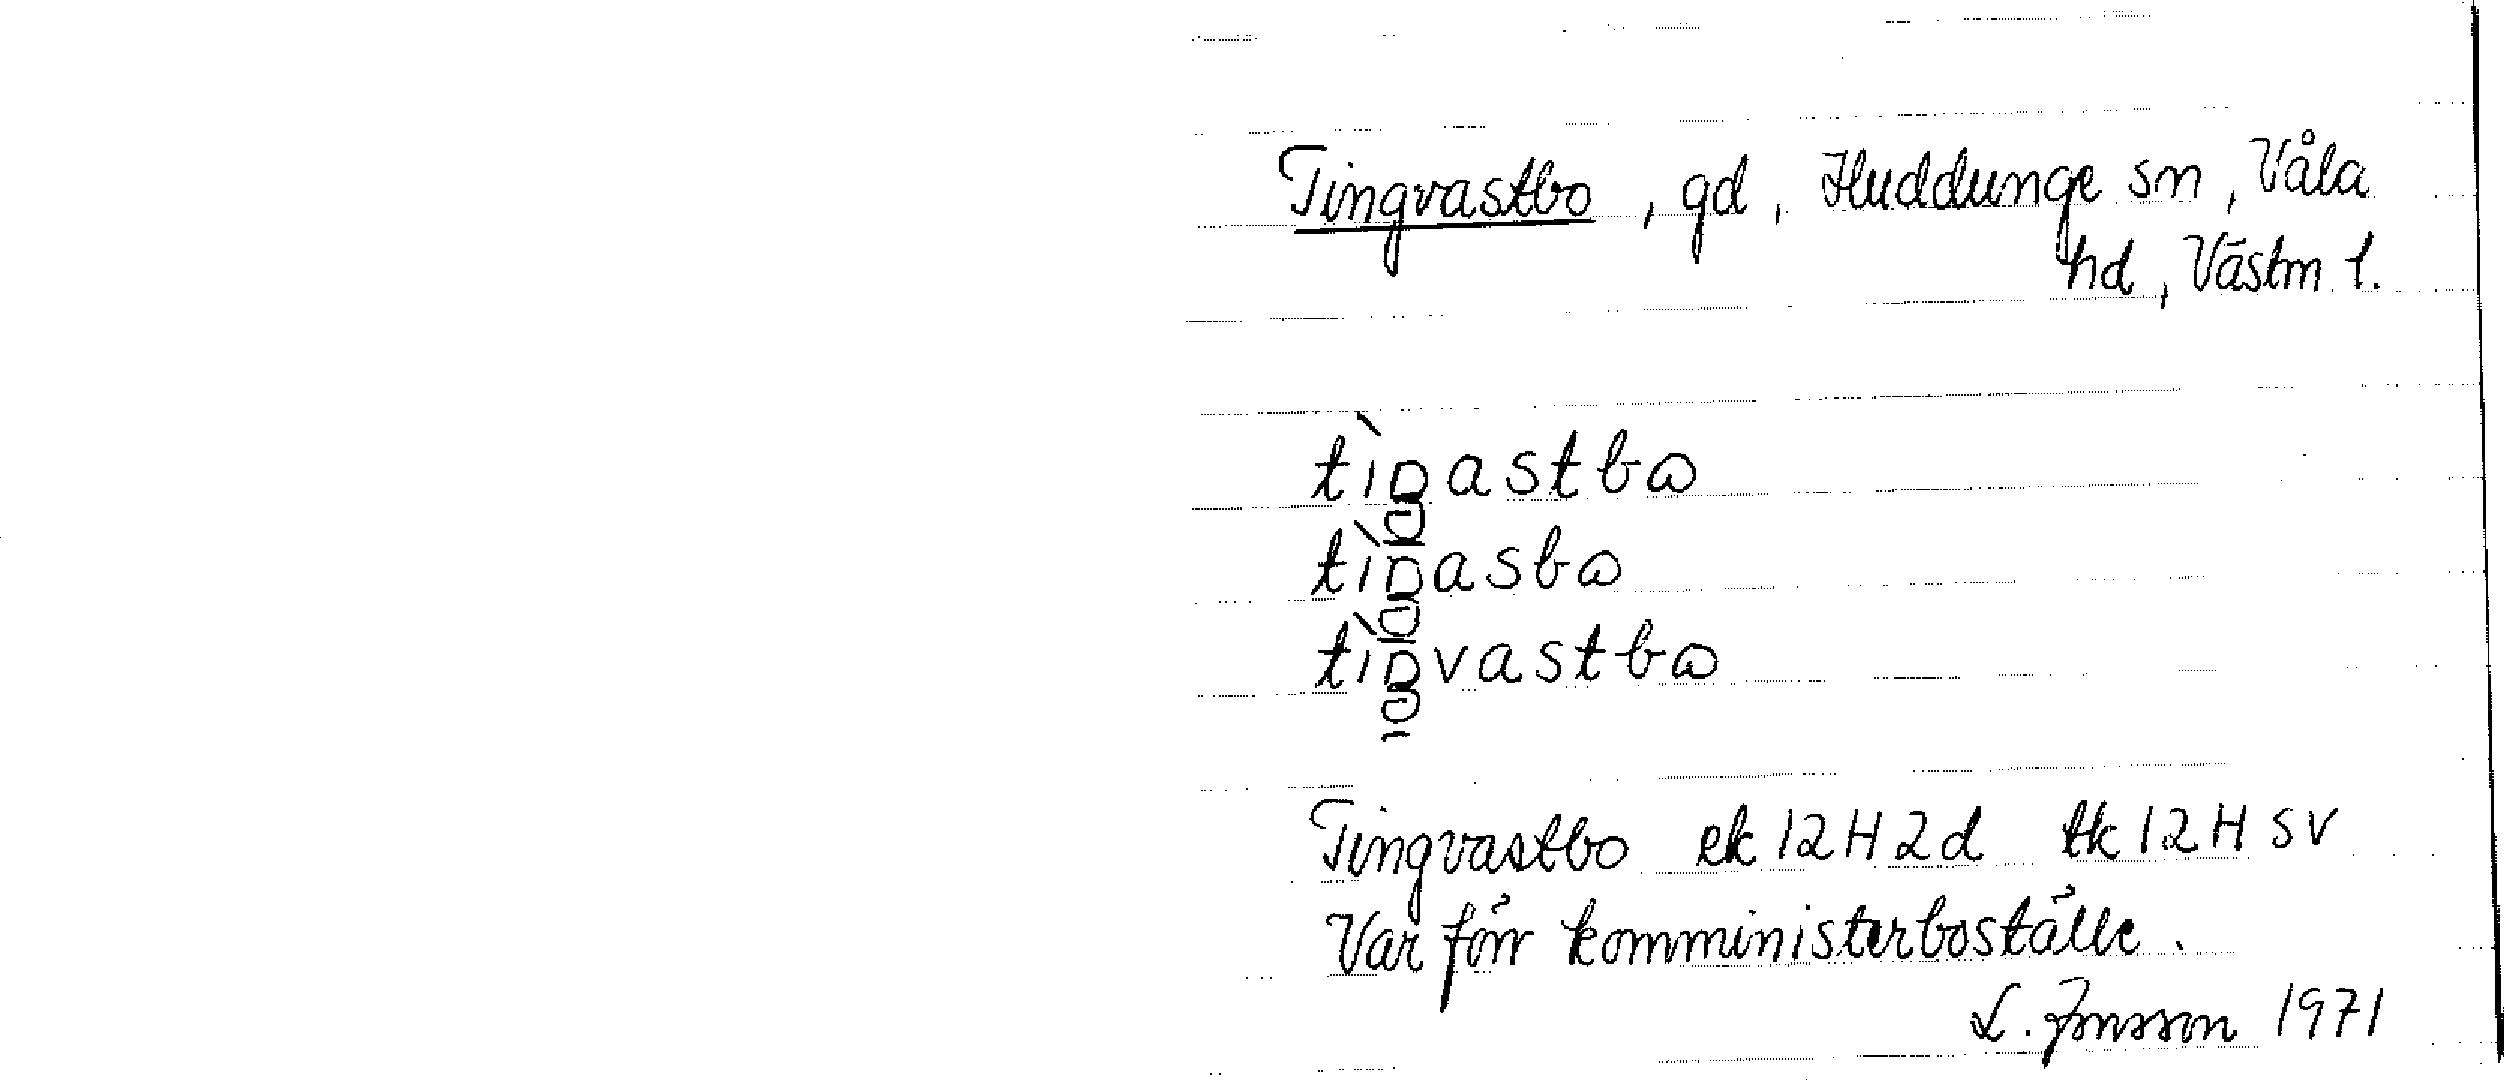 Tingvastbo, gd, Huddunge sn, Våla
hd, Västm l.
tìŋastbɷ
tìŋasbɷ
tìŋvastbɷ
Tingvastbo ek 12H2d tk 12H SV
Var förr komministerboställe.
L. Jonsson 1971